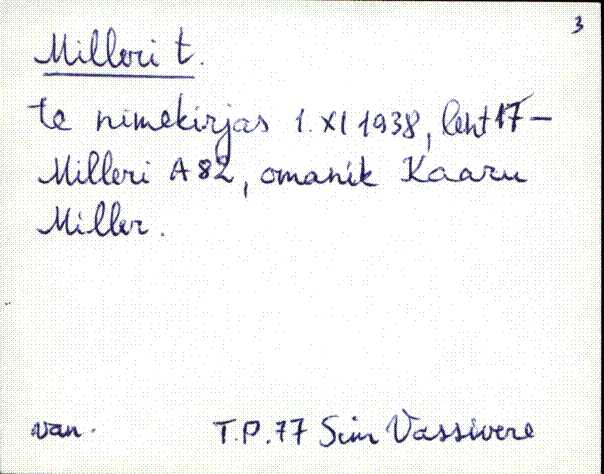 3
Milleri t.
te nimekirjas 1. XI 1938, leht 17 –
Milleri A 82, omanik Kaaru
Miller.
van. T.P. 77 Sim Vassivere